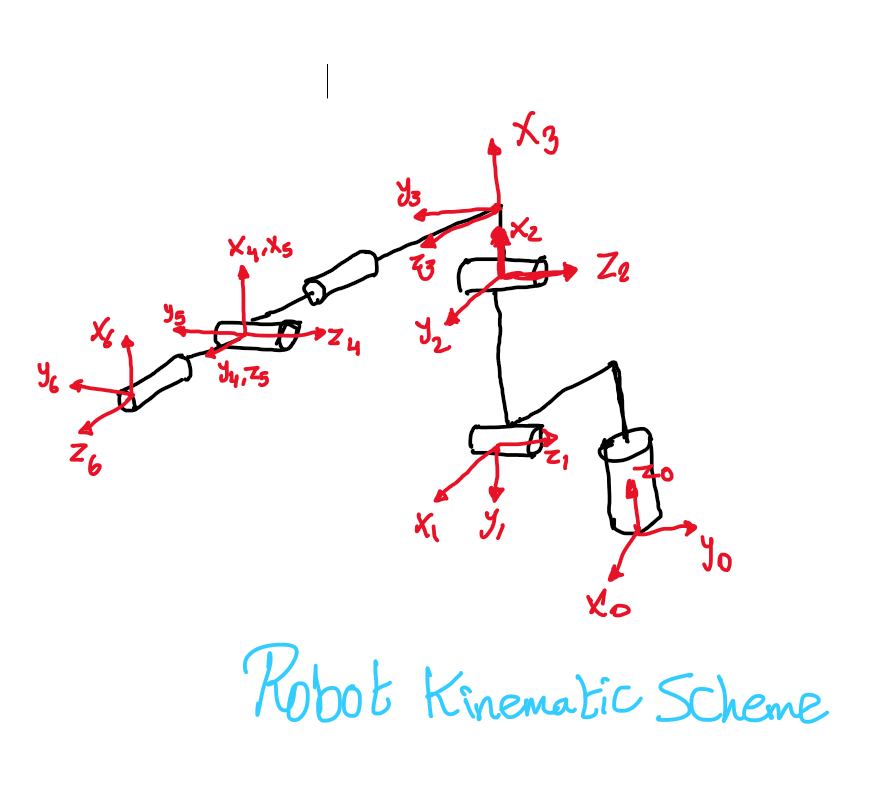 X3
y3
x2
z3
Z2
x4,x5
y5
y2
x6
z4
y4,z5
y6
z6
z1
z0
x1
y1
y0
x0
Robot Kinematic Scheme